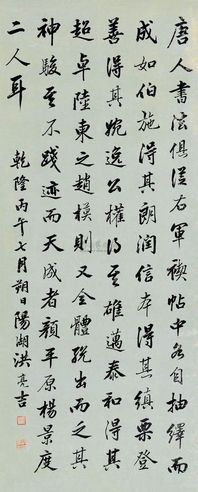 唐人書法俱從右軍禊帖中各自抽繹而
成如伯施得其朗潤信本得其縝栗登
善得其婉逸公權得其雄邁泰和得其
超卓陸東之趙模則又全體脫出而之其
神駿至不踐迹而天成者顏平原楊景度
二人耳
乾隆丙午七月朔日陽湖洪亮吉